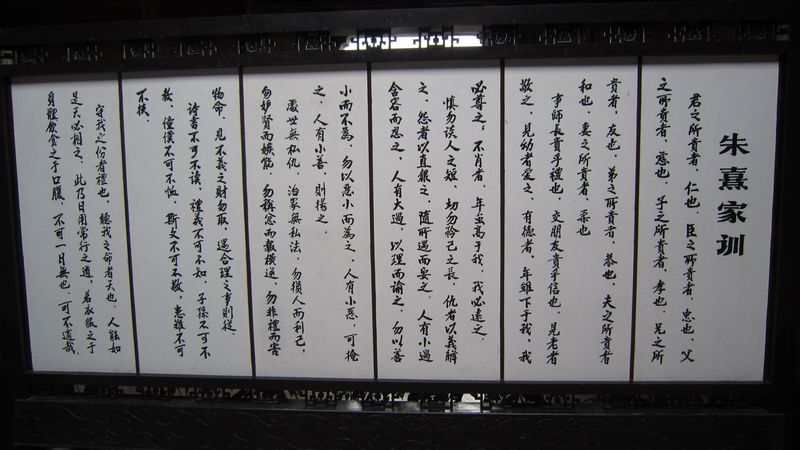 朱熹家训
君之所貴者，仁也．臣之所貴者，忠也．父
之所貴者，慈也．子之所貴者，孝也．兄之所
貴者，友也．弟之所貴者，恭也．夫之所貴者
和也．妻之所貴者，柔也
事師長貴乎禮也，交朋友貴乎信也．見老者
敬之，見幼者愛之．有德者，年雖下于我，我
必尊之；不肖者，年虽高于我，我必遠之．
慎勿谈人之短，切勿矜己之長．仇者以義解
之，怨者以直報之，随所遇而安之．人有小過
含容而忍之，人有大過，以理而諭之．勿以善
小而不為，勿以惡小而為之．人有小惡，可掩
之，人有小善，則揚之．
處世無私仇，治家無私法．勿損人而利己，
勿妒賢而嫉能．勿稱忿而報横逆，勿非禮而害
物命．見不義之财勿取，遇合理之事則從．
诗書不可不读，禮義不可不知．子孫不可不
教，僮僕不可不恤．斯文不可不敬，患難不可
不扶．
守我之份者禮也，聽我之命者天也．人能如
是天必相之．此乃日用常行之道，若衣服之于
身體飲食之于口腹，不可一日無也，可不哉．